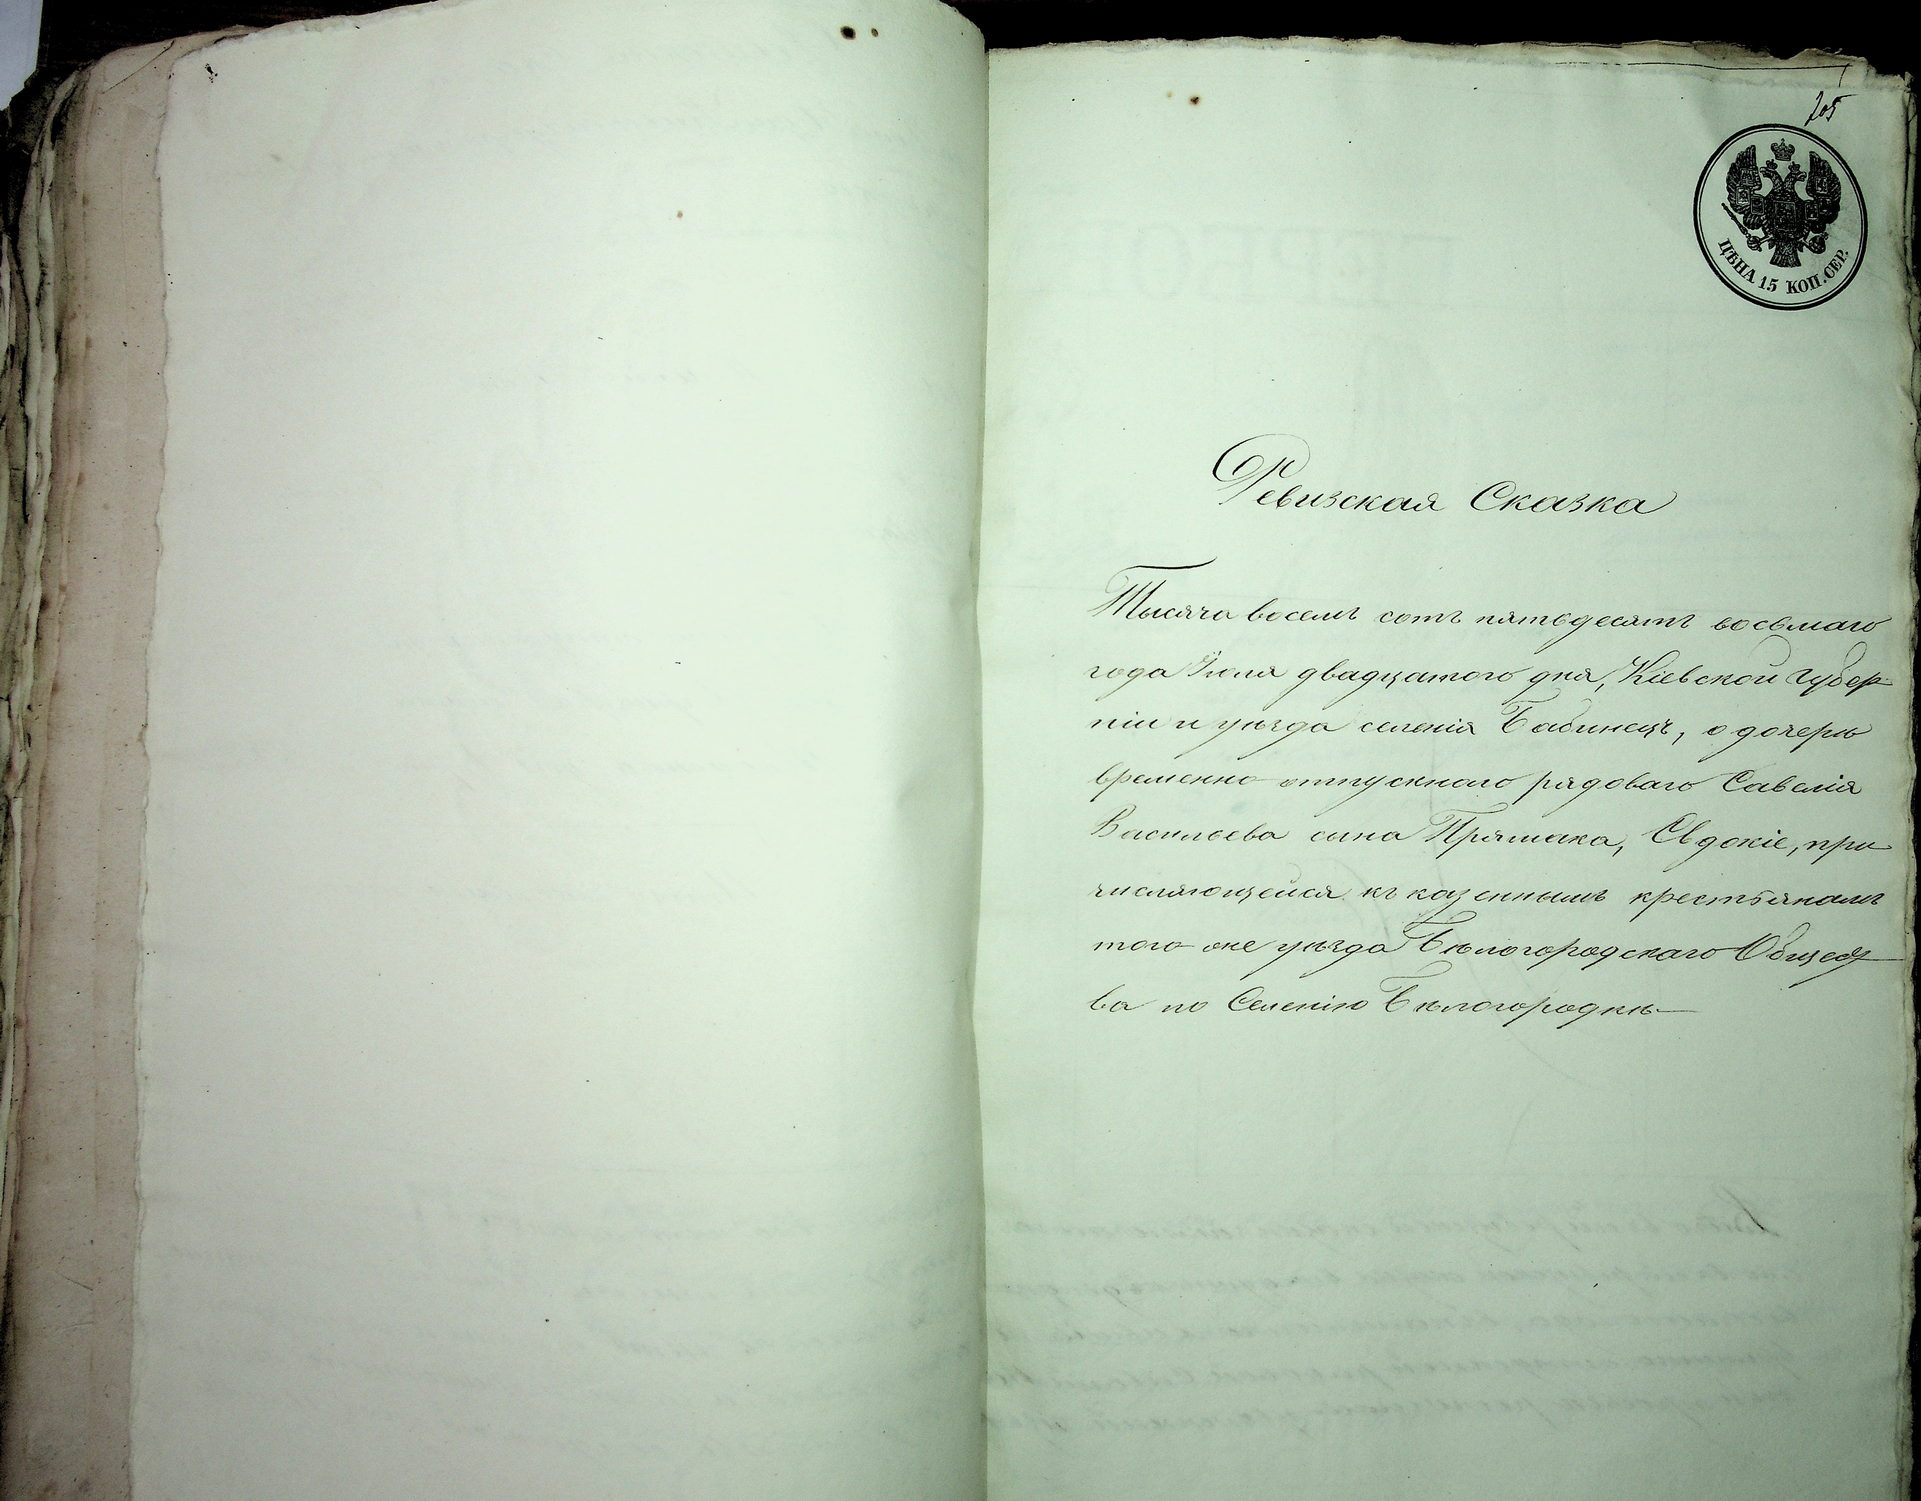 205
ЦѢНА 15 КОП. СЕР.
Ревизская Сказка
Тысяча восемъ сотъ пятьдесятъ восьмаго
года Іюля двадцатого дня, Кіевской Губер-
ніи и уѣзда селенія Бабинецъ, о дочерѣ
временно-отпускнаго рядоваго Савелія
Васильева сына Прямака, Евдокіе, при-
числяющейся къ казеннымъ крестьянамъ
того-же уѣзда Бѣлогородскаго Общест-
ва по Селенію Бѣлогородкѣ